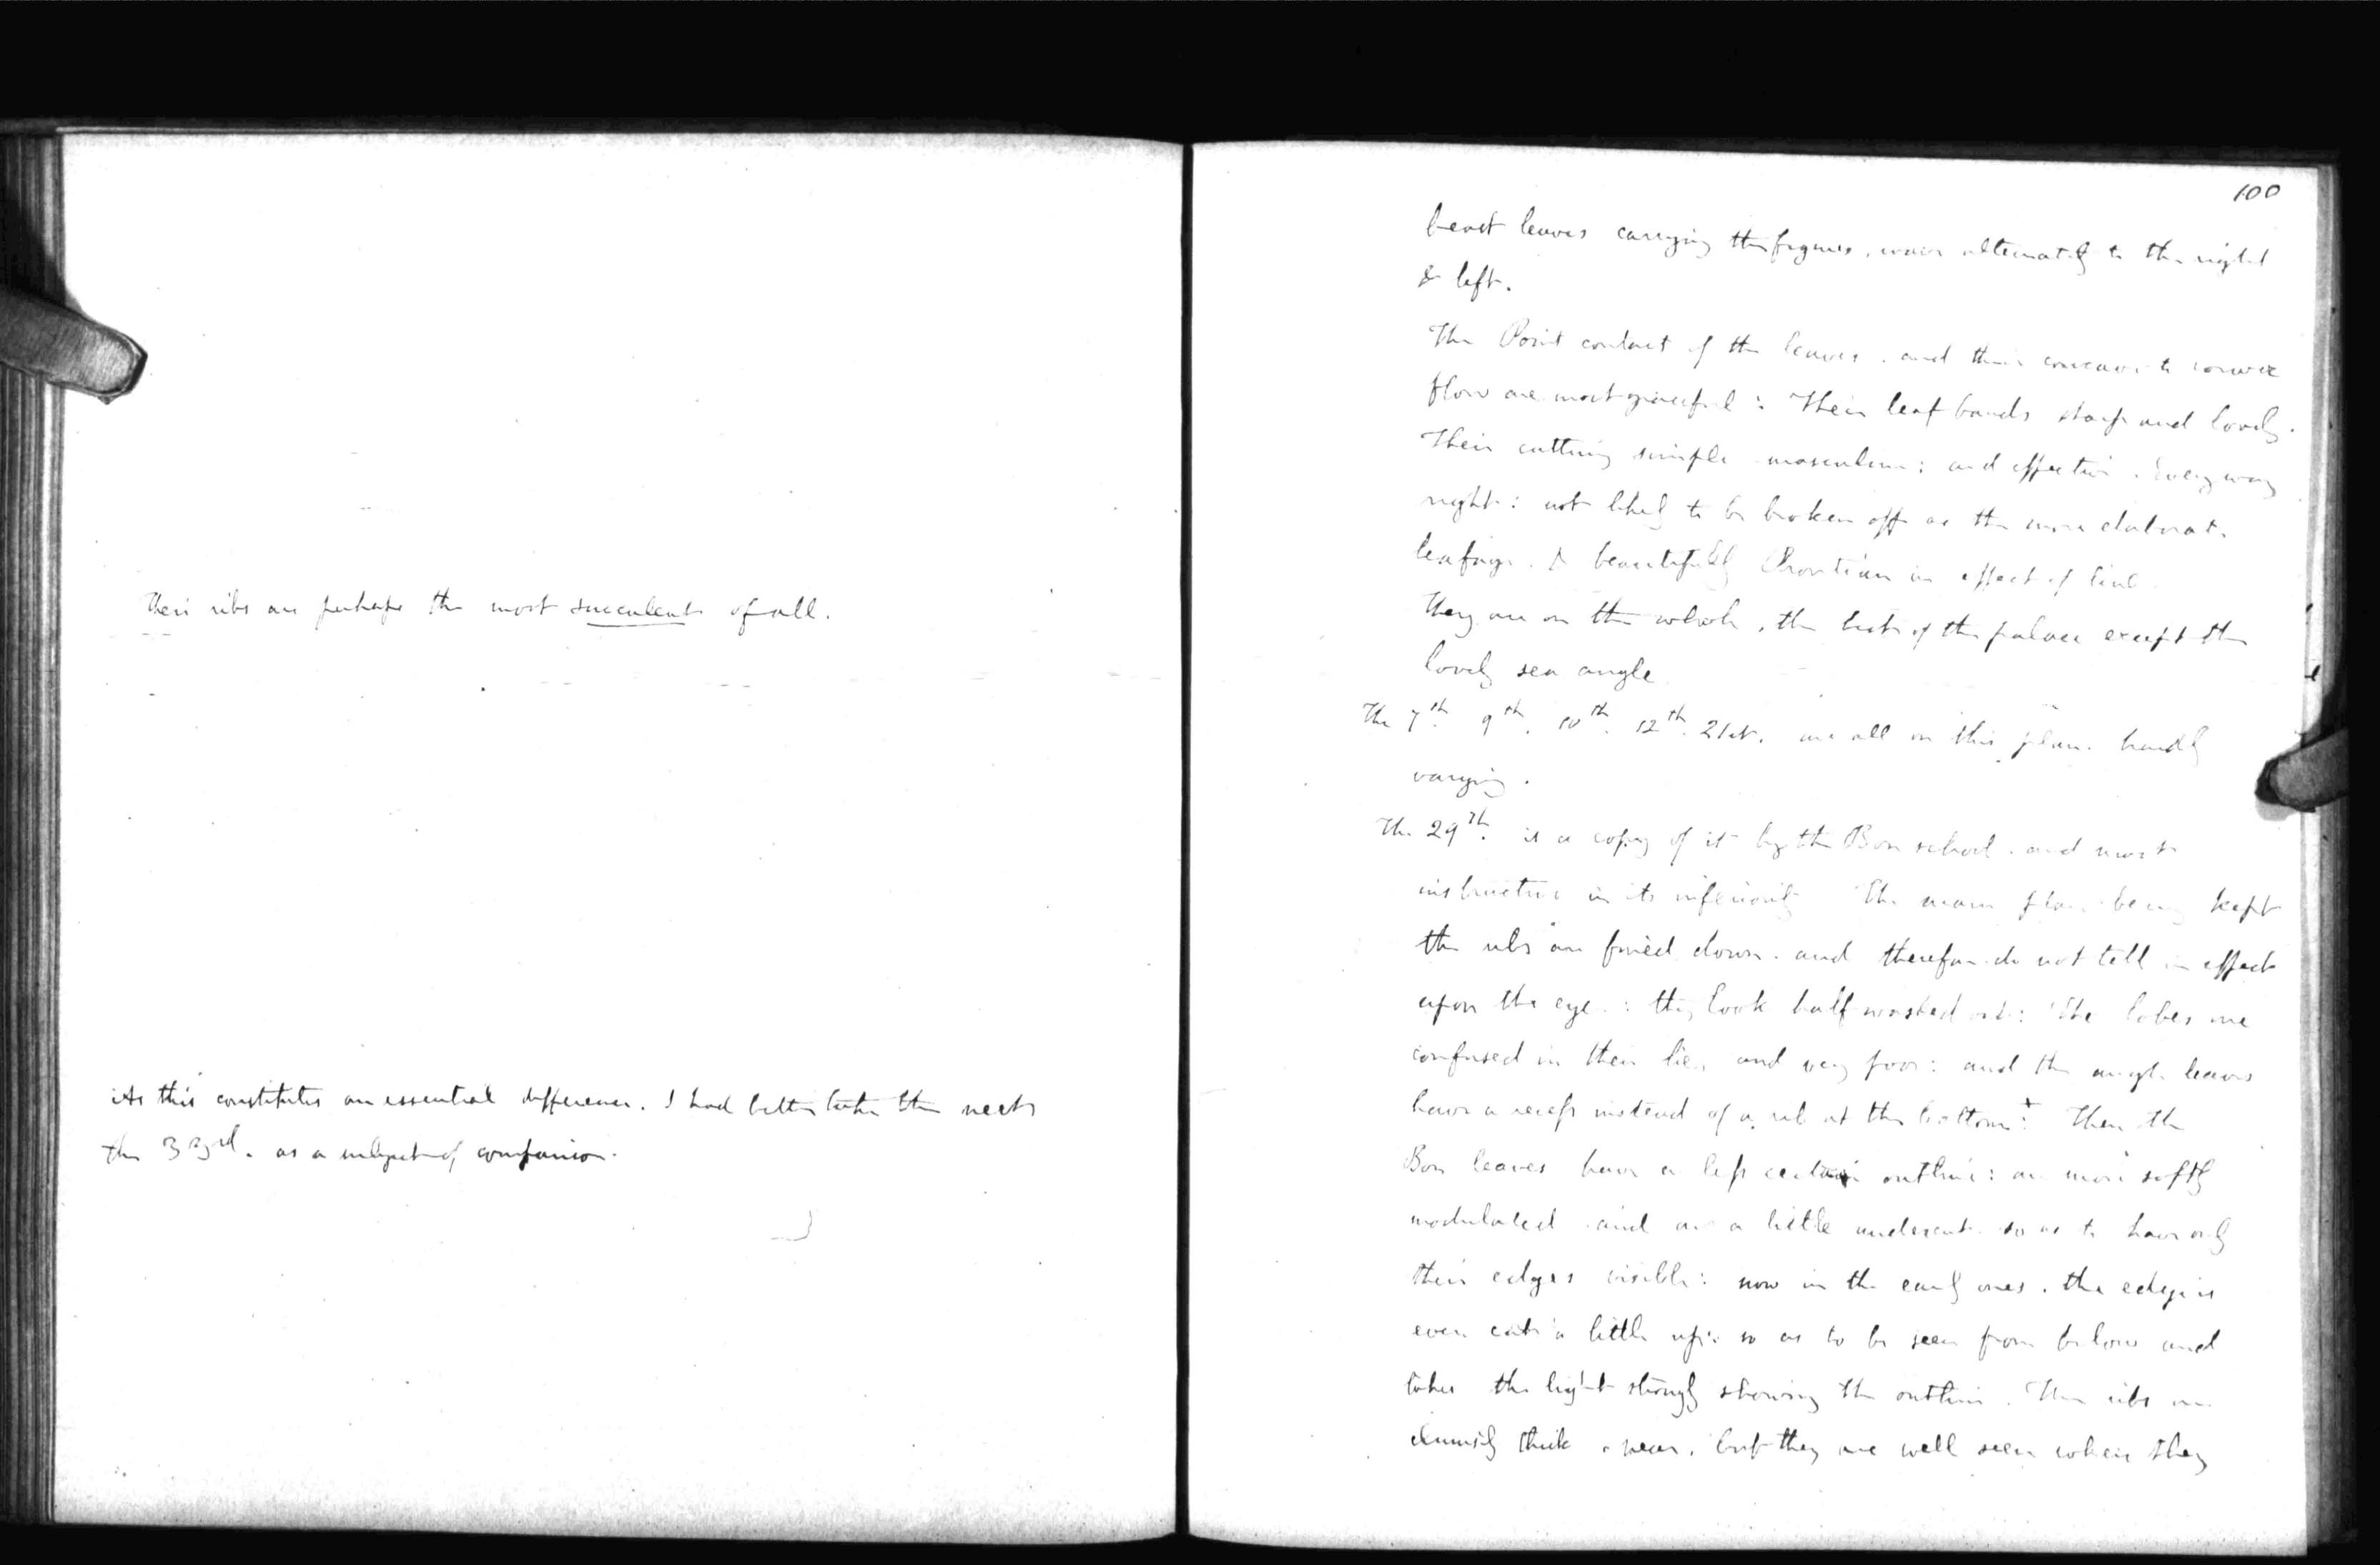 Their ribs are perhaps the most succulent of all.
As this constitutes an essential difference. I had better take the next
the 33rd. as a subject of comparison.
100
beast leaves carrying the figures, wave alternately to the right
& left.
The Point contact of the leaves. and their concave to convex
flow are most graceful: Their leaf bands sharp and lovely.
Their cutting simple masculine: and effective. Every way
right: not likely to be broken off as the more elaborate
leafage. & beautifully Proutian in effect of line
They are on the whole, the best of the palace except the
lovely sea angle
The 7th. 9th. 10th. 12th. 21st. are all on this plan. hardly
varying.
The 29th. is a copy of it by the Bon school. and most
instructive in its inferiority The main plan being kept
the ribs are fined down. and therefore do not tell in effect
upon the eye.: they look half washed out: The lobes are
confused in their lie, and very poor: and the angle leaves
have a recess instead of a rib at the bottom:+ Then the
Bon leaves have a less certain outline: are more softly
modulated and are a little undercut so as to have only
their edges visible: now in the early ones. the edge is
even cut a little up: so as to be seen from below and
takes the light strongly showing the outline. The ribs are
clumsily thick near, but they are well seen when they